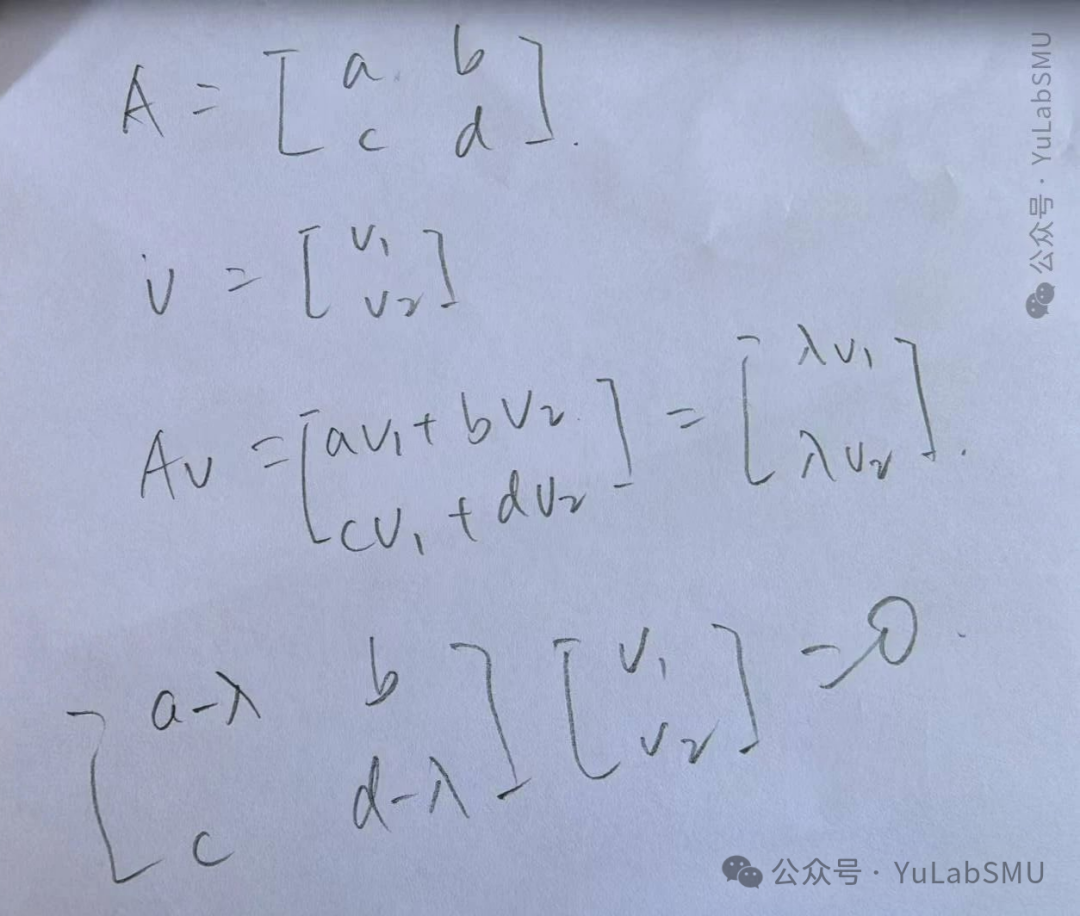 A = [ a b
c d ].
v = [ v₁
v₂ ]
Av = [ av₁ + bv₂
cv₁ + dv₂ ] = [ λv₁
λv₂ ].
[ a-λ b
c d-λ ] [ v₁
v₂ ] = 0
公众号 · YuLabSMU
公众号 · YuLabSMU